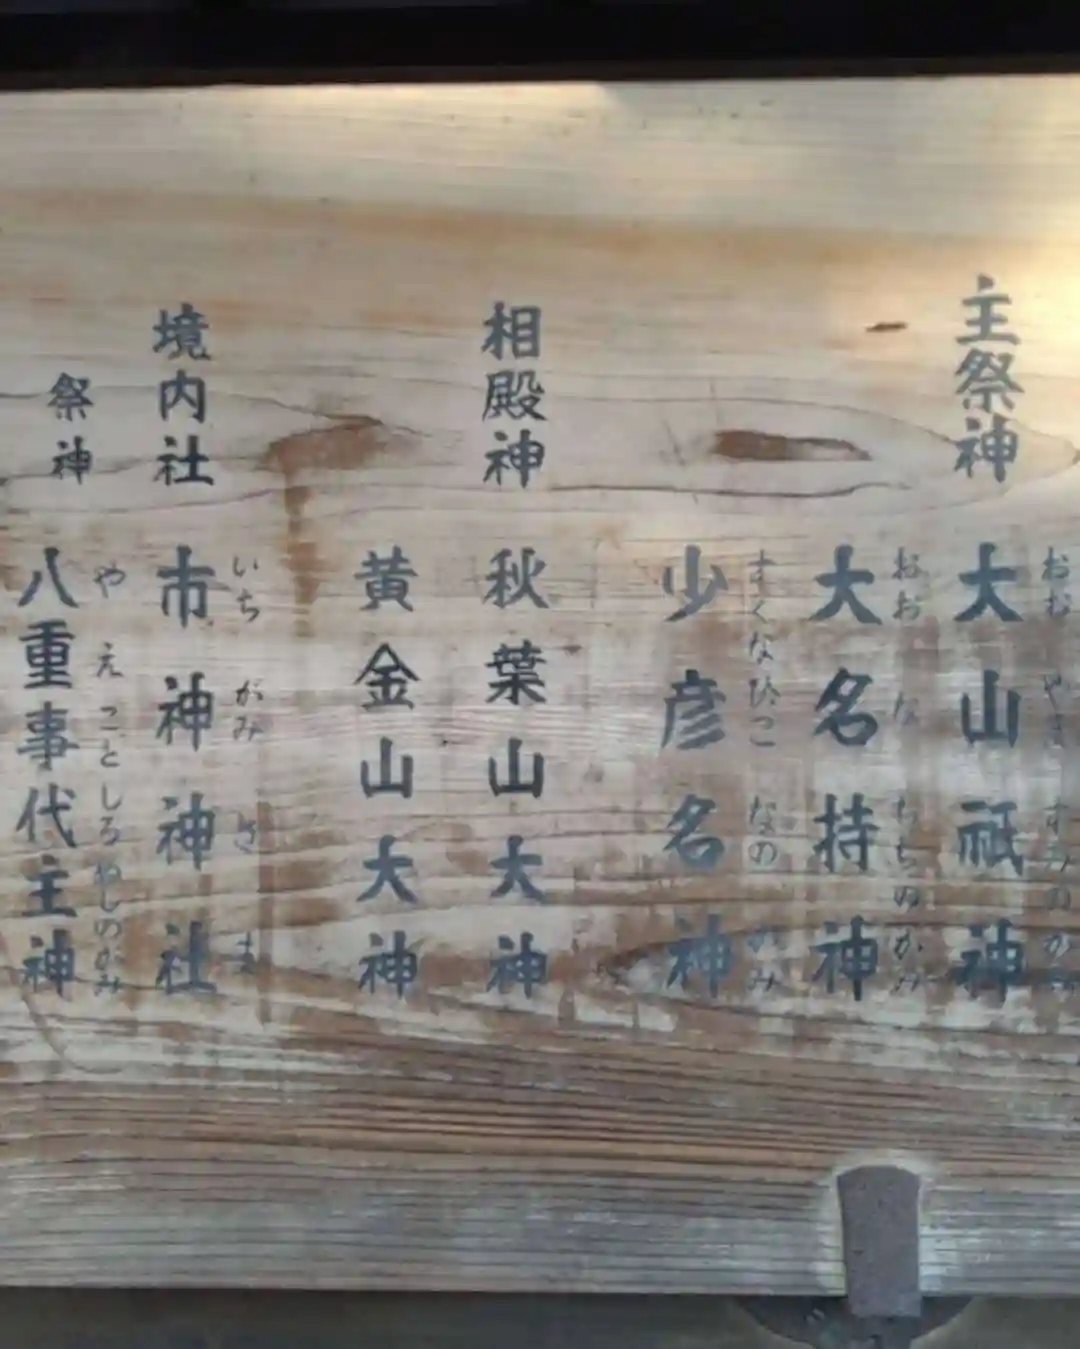 主祭神
大山祇神
おおやまずみのかみ
大名持神
おおなもちのかみ
少彦名神
すくなひこなのかみ
相殿神
秋葉山大神
黄金山大神
境内社
市神神社
いちがみさま
祭神
八重事代主神
やえことしろぬしのかみ